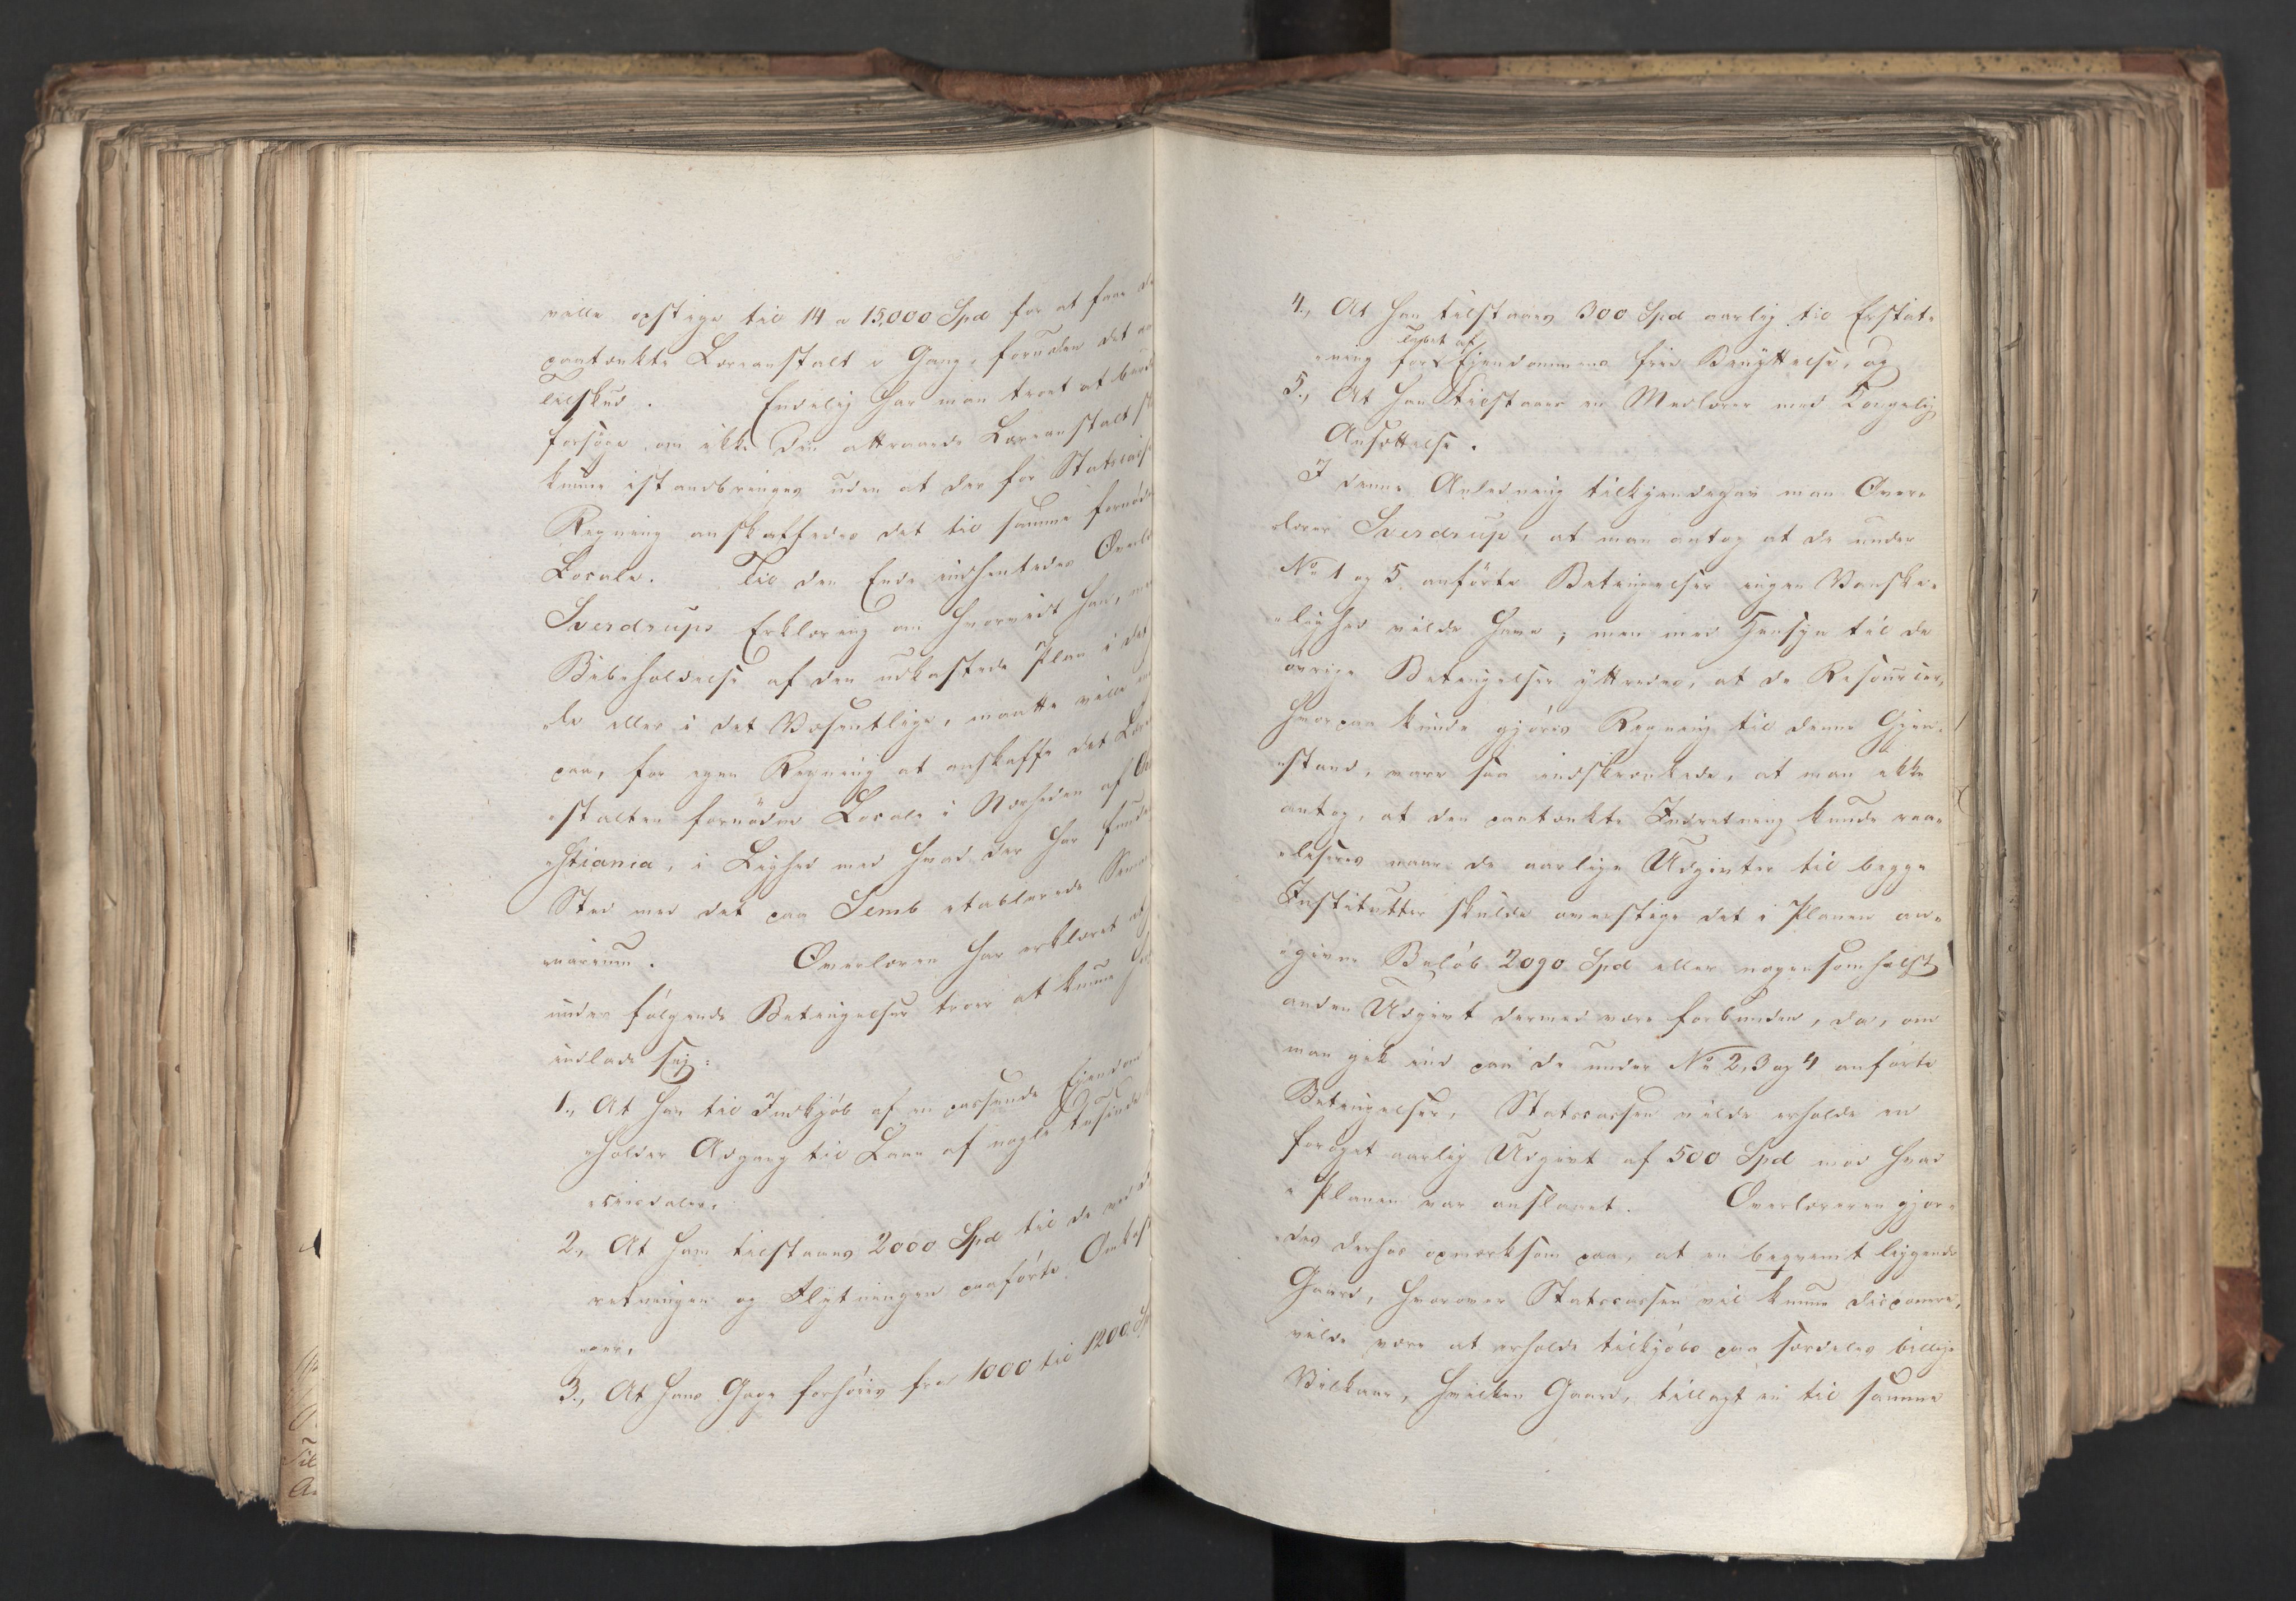 ville opstige til 14 a 15,000 Spd for at faae de
paatænkte Læreanstalt i Gang, foruden det
Tilskud. Endelig har man troet at burde
forsøge, om ikke den attraaede Læreanstalt
kunne istandbringes uden at der for Statscass
Regning anskaffedes det til samme fornødn
Locale. Til den Ende indhentedes Overlæ
Sverdrups Erklæring om hvorvidt han, med
Bibeholdelse af den udkastede Plan i det
le eller i det Væsentlige, maatte ville
paa, for egen Regning at anskaffe det Lære
-stalten fornødne Locale i Nærheden af Chri
-stiania, i Lighed med hvad der har fundet
Sted med det paa Semb etablerede Semi
-narium. Overlæreren har erklæret at
under følgende Betingelser troer at kunne
indlade sig:
1., At han til Indkjøb af en passende Eiendom
-holder Adgang til Laan af nogle tusinde
-ciedaler.
2., At ham tilstaaes 2000 Spd til de ved
retningen og Flytningen paaførte Omkost
-ger,
3., At hans Gage forhøies fra 1000 til 1200 Sp
4., At han tilstaaes 300 Spd aarlig til Erstat-
-ning for Tabet af Eiendommens frie Benyttelse, og
5., At han tilstaaes en Medlærer med Kongelig
Ansættelse.
I denne Anledning tilkjendegav man Over-
-lærer Sverdrup, at man antog at de under
No 1 og 5 anførte Betingelser ingen Vanske-
-lighed vilde have; men med Hensyn til de
øvrige Betingelser yttredes, at de Resourcer,
hvorpaa kunde gjøres Regning til denne Gjen-
-stand, vare saa indskrænkede, at man ikke
antog, at den paatænkte Indretning kunde rea-
-liseres naar de aarlige Udgivter til begge
Institutter skulde overstige det i Planen an-
-givne Beløb 2090 Spd eller nogensomhelst
anden Udgivt dermed være forbunden, da, om
man gik ind paa de under No 2, 3 og 4 anførte
Betingelser, Statscassen vilde erholde en
forøget aarlig Udgivt af 500 Spd mod hvad
i Planen var anslaaet. Overlæreren gjor-
-des derhos opmærksom paa, at en beqvemt liggende
Gaard, hvorover Statscassen vil kunne disponere,
vilde være at erholde tilkjøbs paa særdeles billige
Vilkaar, hvilken Gaard, tillagt en til samme